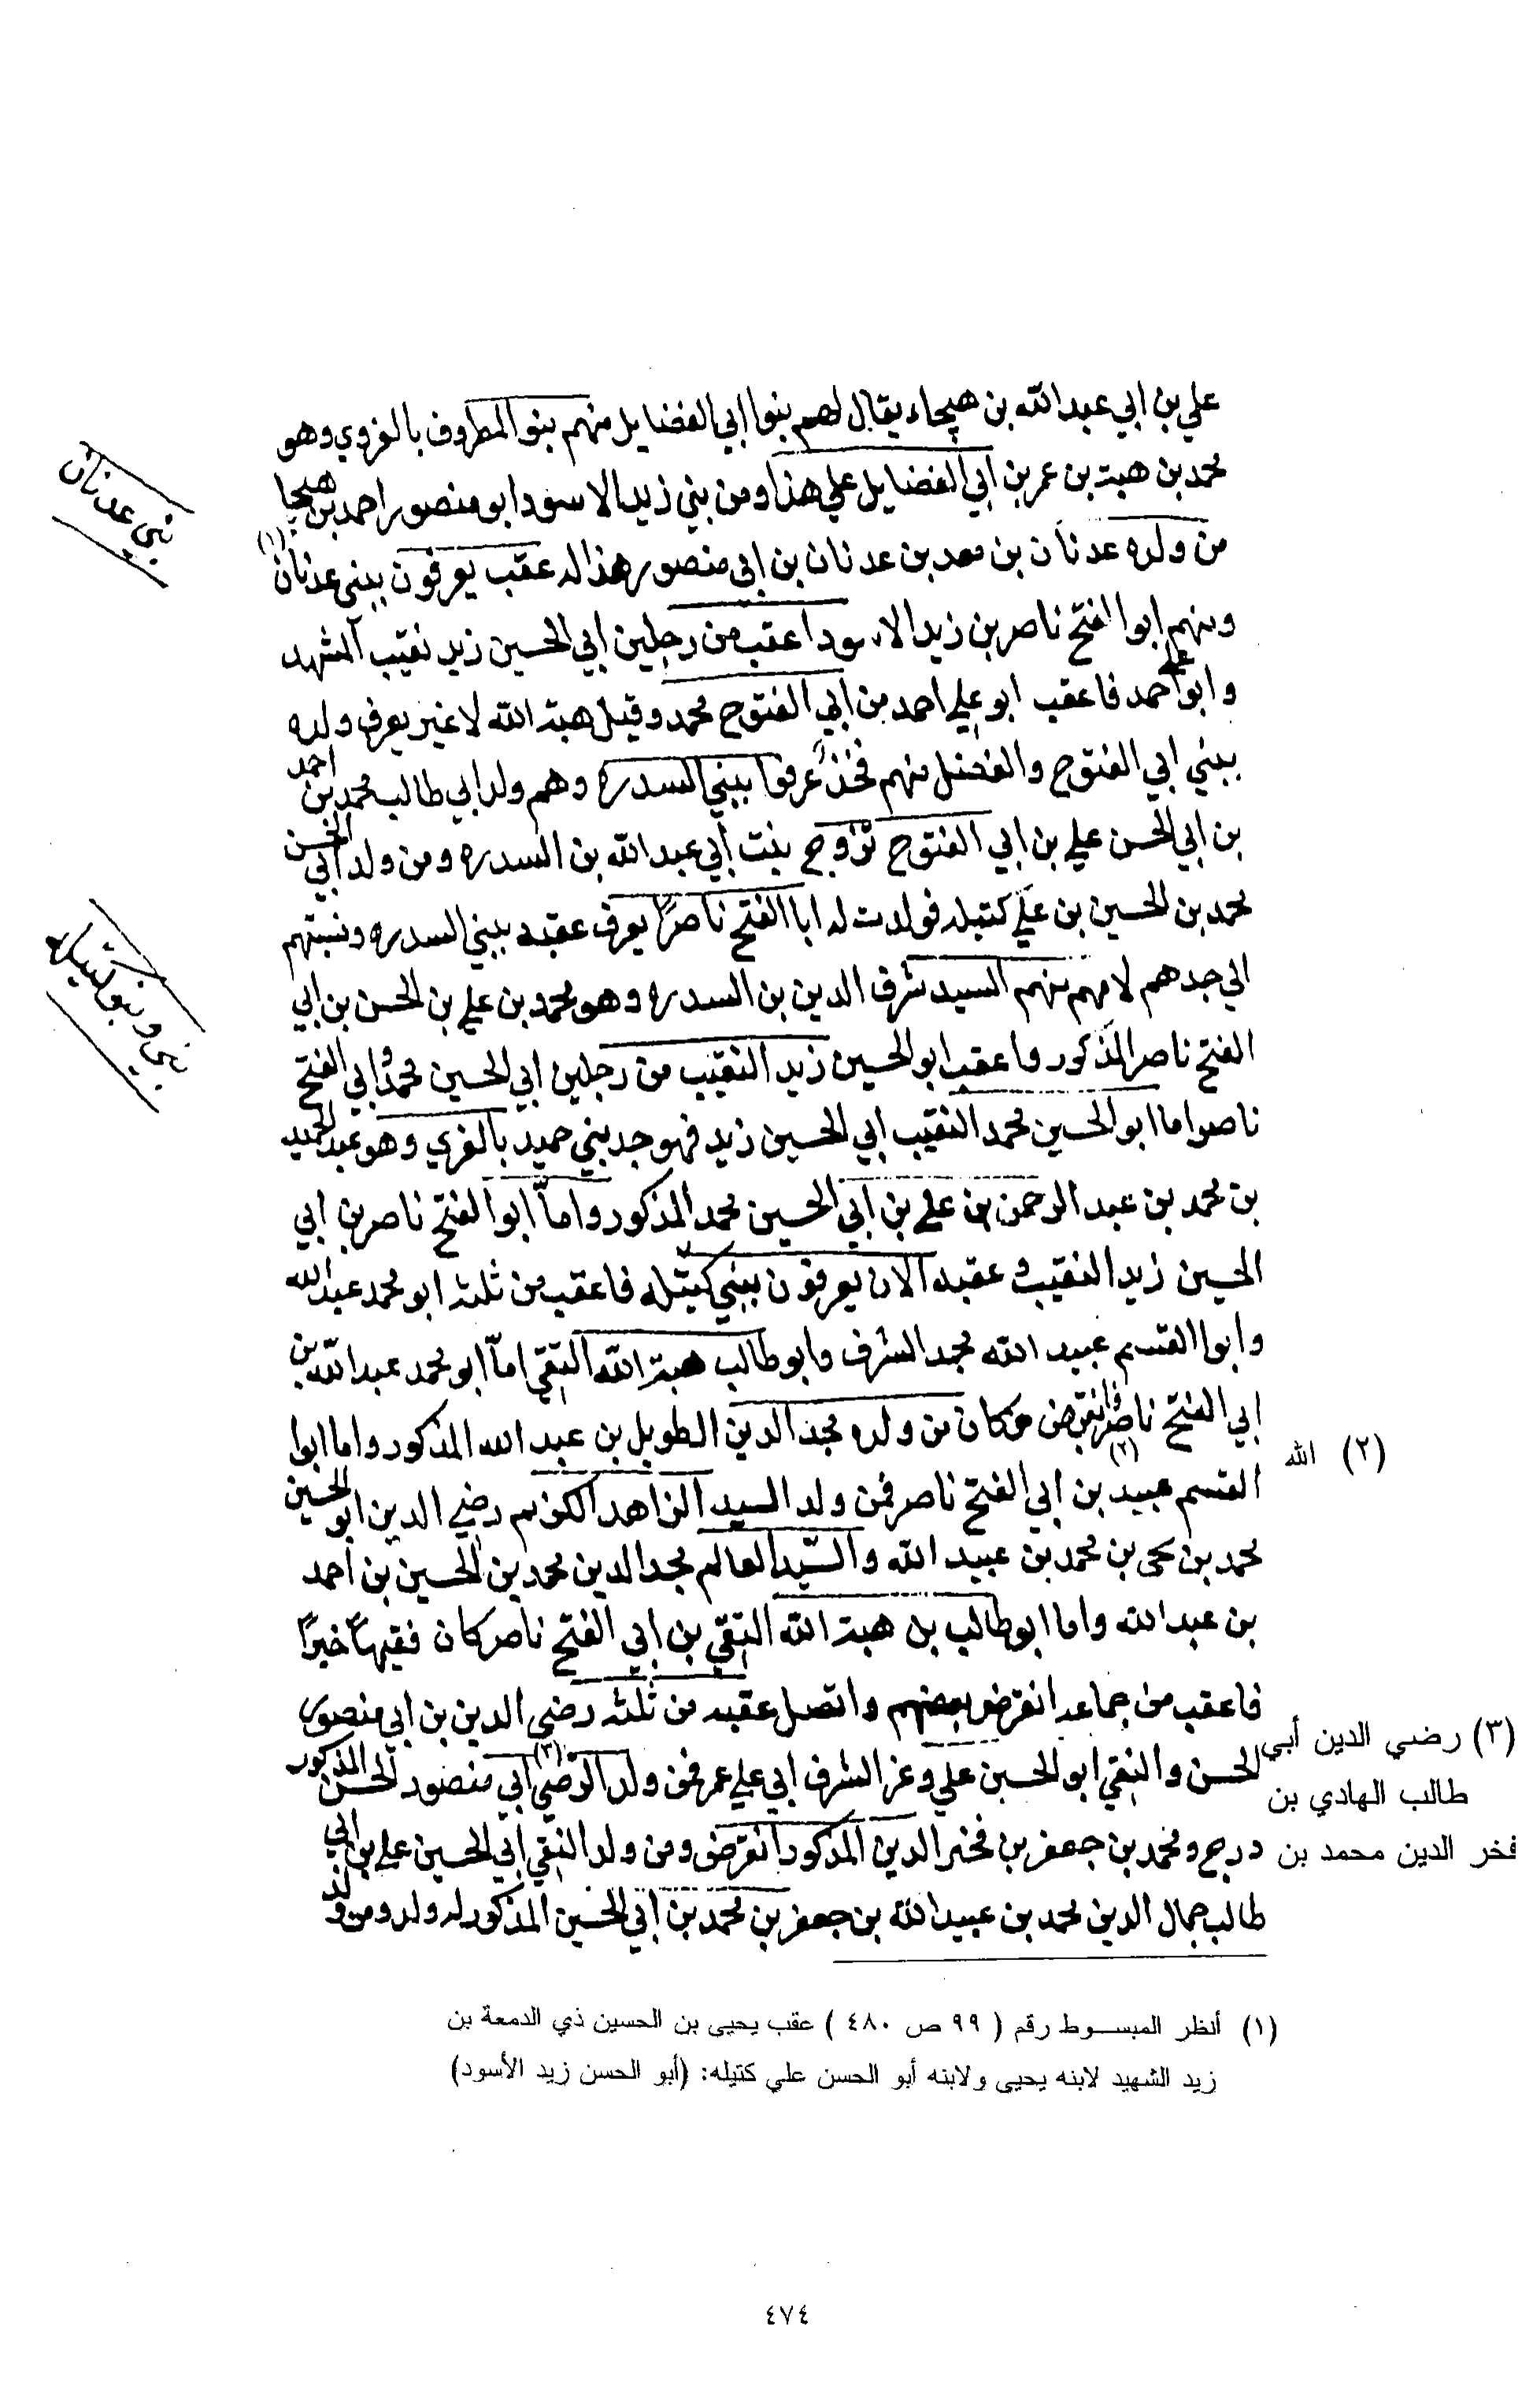 علي بن ابي عبد الله بن هيجاء يقال لهم بنوا ابي الفضايل منهم بنو المطروف بالغروي وهو
محمد بن هبة بن عمر بن ابي الفضايل علي هذا ومن بني زيد الاسود ابو منصور احمد بن هيجا
من ولده عدنان بن معد بن عدنان بن ابي منصور هذا له عقب يعرفون ببني عدنان (١)
بني عدنان
ومنهم ابوا الفتح ناصر بن زيد الاسود اعقب من رجلين ابي الحسين زيد نقيب المشهد
وابو علي احمد فاعقب ابو علي احمد من ابي الفتوح محمد وقيل هبة الله لا غير يعرف ولده
ببني ابي الفتوح والفضل منهم فخذ عرفوا ببني السدره وهم ولد ابي طالب محمد بن احمد
بن ابي الحسن علي بن ابي الفتوح تزوج بنت ابي عبد الله بن السدره ومن ولد ابي الحسن
محمد بن الحسين بن علي كتيله فولدت له ابا الفتح ناصراً يعرف عقبه ببني السدره ونسبتهم
الي جدهم لامهم منهم السيد شرف الدين بن السدره وهو محمد بن علي بن الحسن بن ابي
بنو كتيله
الفتح ناصر المذكور واعقب ابو الحسين زيد النقيب من رجلين ابي الحسين محمد وابي الفتح
ناصر اما ابو الحسين محمد النقيب ابي الحسين زيد فهو جد بني حميد بالغري وهو عبد الحميد
بن محمد بن عبد الرحمن بن علي بن ابي الحسين محمد المذكور واماّ ابوا الفتح ناصر بن ابي
الحسين زيد النقيب وعقبه الان يعرفون ببني كتيله فاعقب من ثلثه ابو محمد عبد الله
وابوا القسم عبيد الله مجد الشرف وابو طالب هبة الله التقي اماّ ابو محمد عبد الله بن
ابي الفتح ناصر فانقرض وكان من ولده مجد الدين الطويل بن عبد الله المذكور واما ابوا
القسم عبيد (٢) بن ابي الفتح ناصر فمن ولد السيد الزاهد رضي الدين ابو الحسين
(٢) الله
محمد بن يحيى بن محمد بن عبيد الله والسيّد العالم مجد الدين محمد بن الحسين بن احمد
بن عبد الله واما ابو طالب بن هبة الله التقي بن ابي الفتح ناصر كان فقيهاً خيراً
فاعقب من جماعه انقرض بعضهم واتصل عقبه من ثلثه رضي الدين بن ابي منصور
الحسن والنقي ابو الحسين علي وعز الشرف ابي علي عمر فمن ولد الرضي (٣) ابي منصور الحسن المذكور
(٣) رضي الدين أبي
طالب الهادي بن
فخر الدين محمد بن
درج ومحمد بن جعفر بن فخر الدين المذكور انقرض ومن ولد النقي ابي الحسين علي بن ابي
طالب جمال الدين محمد بن عبيد الله بن جعفر بن محمد بن ابي الحسين المذكور له ولد ومن ولد
(١) أنظر المبسوط رقم ( ٩٩ ص ٤٨٠ ) عقب يحيى بن الحسين ذي الدمعة بن
زيد الشهيد لابنه يحيى ولابنه أبو الحسن علي كتيله: (أبو الحسن زيد الأسود)
٤٧٤